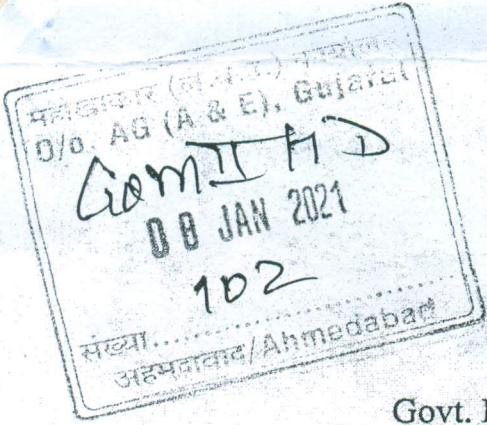 महालेखाकार (ले.प.ह.) कार्यालय
O/o. AG (A & E), Gujarat
II
08 JAN 2021
102
संख्या..................
अहमदाबाद/Ahmedabad
Govt.